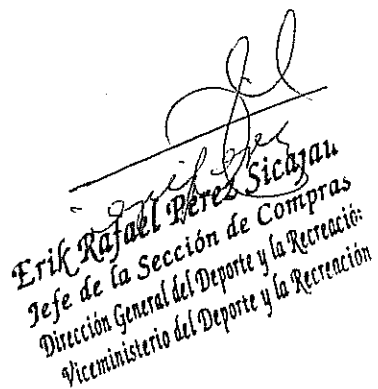 Erik Rafael Pérez Sicajau
Jefe de la Sección de Compras
Dirección General del Deporte y la Recreació:
Viceministerio del Deporte y la Recreación